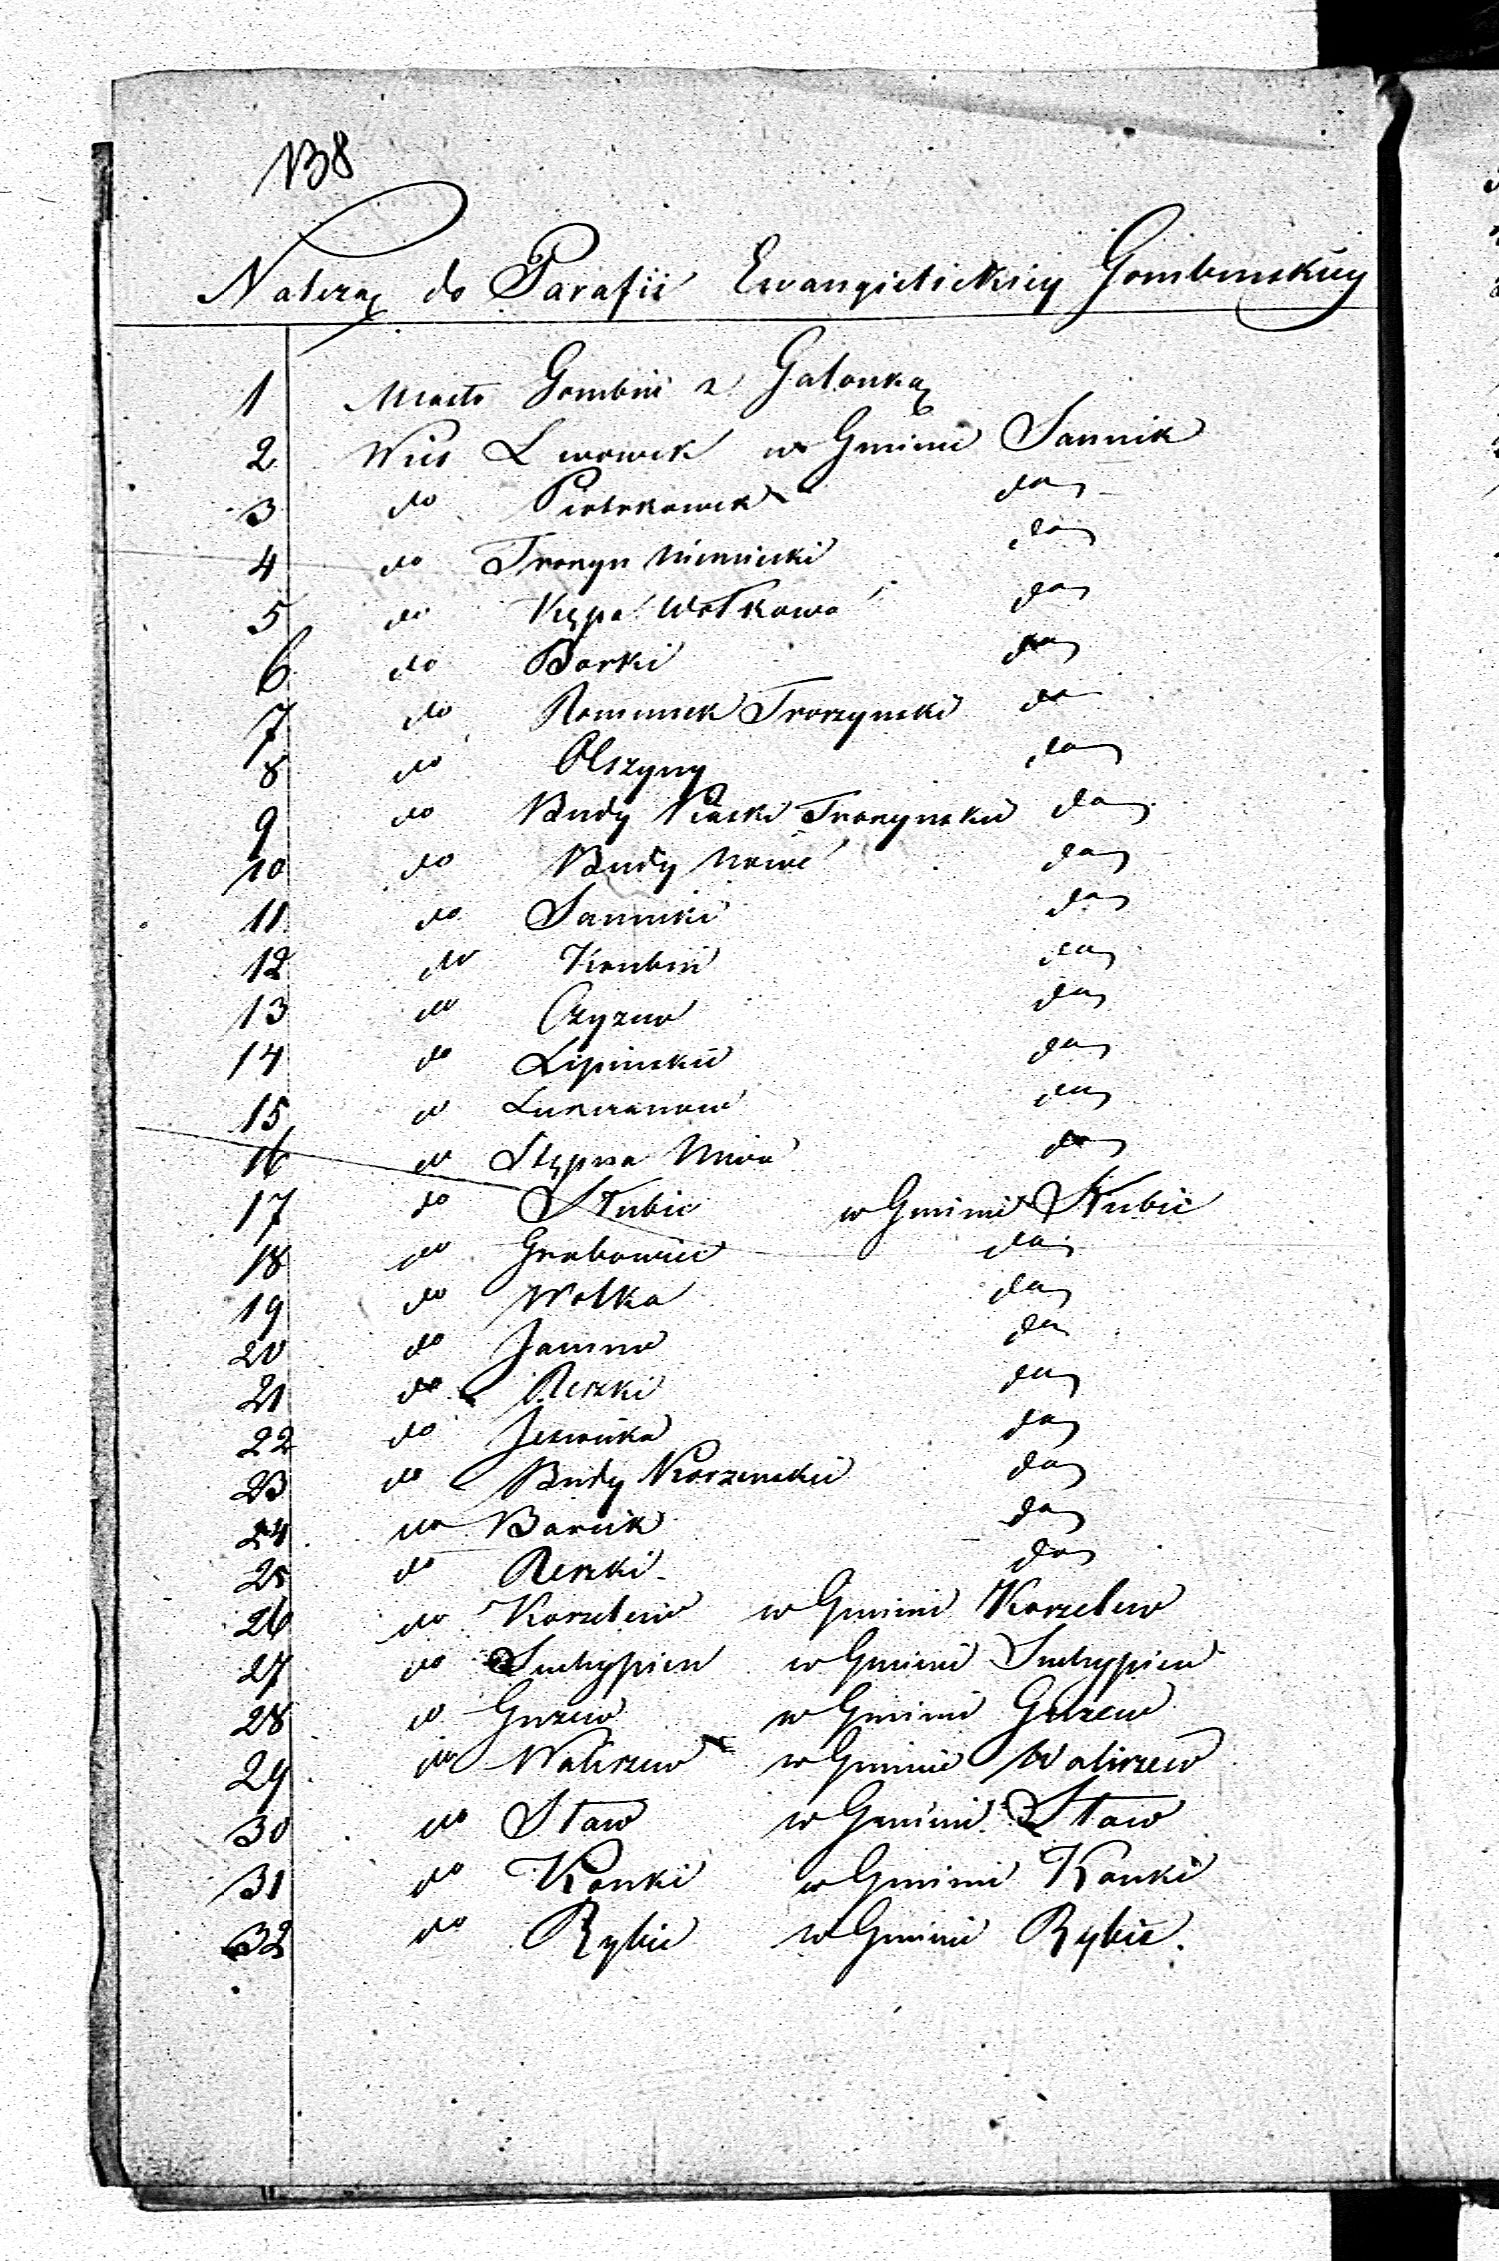 138
Należą do Parafii Ewangielickiey Gombinskiey
1 Miasto Gombin z Galonką
2 Wies Lwowek w Gminie Sannik
3 do Piotrkowek do
4 do Troszyn Niemiecki do
5 do Kępa Wolkowa do
6 do Borki do
7 do Rumunek Troszynski do
8 do Olszyny do
9 do Budy Piaski Troszynskie do
10 do Budy Nowe do
11 do Sanniki do
12 do Krubin do
13 do Czyzew do
14 do Lipinskie do
15 do Lukrzanow do
16 do Stępna Niwa do
17 do Słubic w Gminie Słubic
18 do Grabowiec do
19 do Wolka do
20 do Jamno do
21 do Reszki do
22 do Jezionka do
23 do Budy Korzenskie do
24 do Borcik do
25 do Reszki do
26 do Korzelew w Gminie Korzelew
27 do Suchypien w Gminie Suchypien
28 do Guzew w Gminie Guzew
29 do Waliszew w Gminie Waliszew
30 do Staw w Gminie Staw
31 do Konki w Gminie Konki
32 do Rybie w Gminie Rybie.